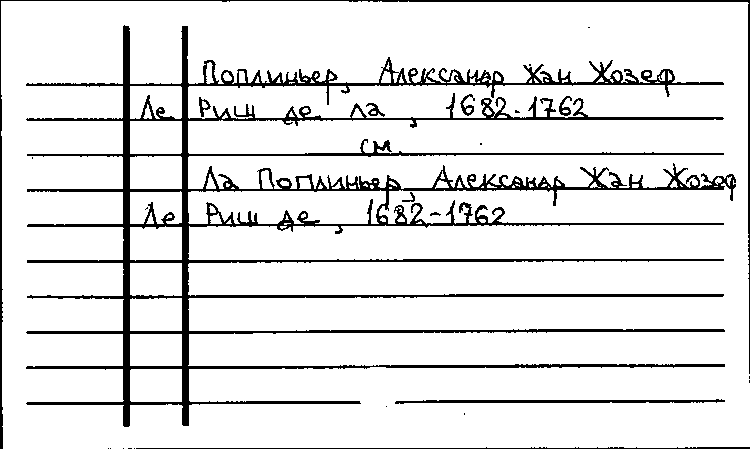 Поплиньер, Александр Жан Жозеф
Ле Риш де ла, 1682-1762
см.
Ла Поплиньер, Александр Жан Жозеф
Ле Риш де, 1682-1762